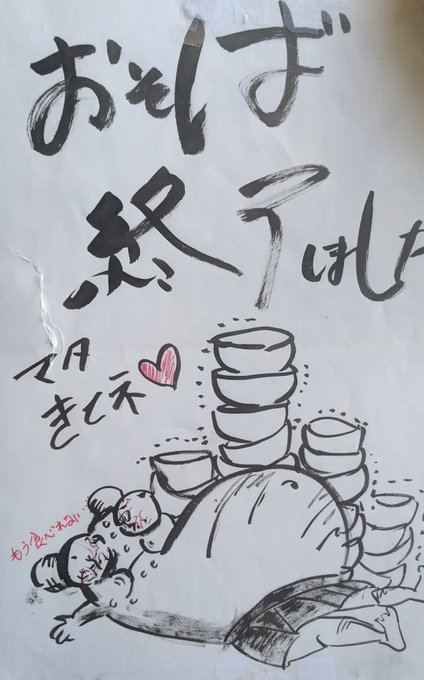 おそば
終了しました
マタ
きてネ
もう食べれない